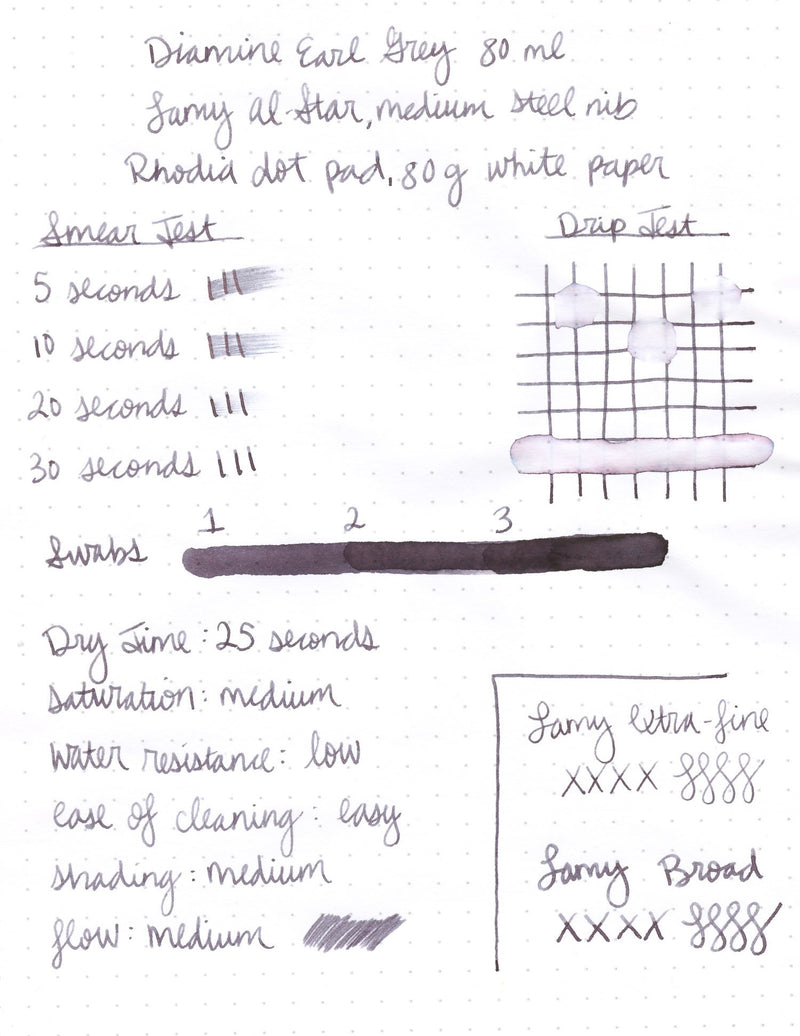 Diamine Earl Grey 80 ml
Lamy al-Star, medium steel nib
Rhodia dot pad, 80g white paper
Smear Test
Drip Test
5 seconds
10 seconds
20 seconds
30 seconds
1 2 3
Swabs
Dry Time: 25 seconds
saturation: medium
water resistance: low
ease of cleaning: easy
shading: medium
flow: medium
Lamy extra-fine
xxxx
Lamy Broad
xxxx